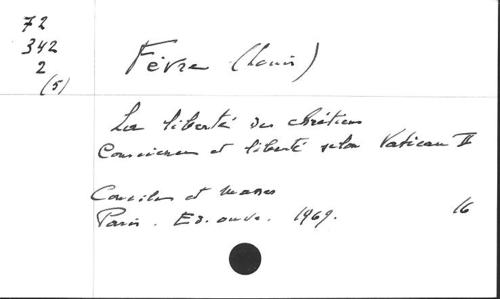 72
342
2
(5)
Fèvre (Louis)
La liberté des chrétiens
Conscience et liberté selon Vatican II
Conciles et masses
Paris. Ed. ouvr. 1969.
16